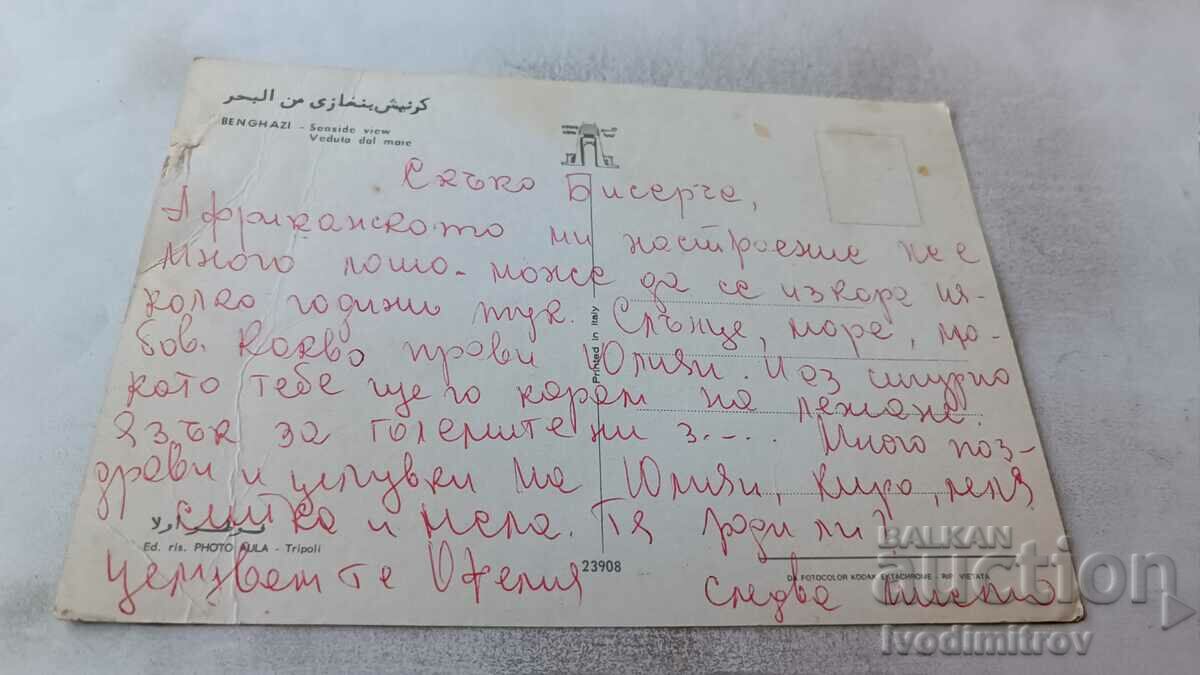 كرنيش بنغازي من البحر
BENGHAZI - Seaside view
Veduta dal mare
Скъпо Бисерче,
Африканското ми настроение не е
много лошо - може да се изкара ня-
колко години тук. Слънце, море, лю-
бов. Какво прави Юлиян. И аз сигурно
като тебе ще го карам на лежане.
Език за големите ни з.... Много поз-
драви и целувки на Юлиян, Киро, леля
и Мела. Тя роди ли?
Целувам те Офелия следва писмо
Printed in Italy
Ed. ris. PHOTO AULA - Tripoli
23908
DA FOTOCOLOR KODAK EKTACHROME - RIP. VIETATA
BALKAN
auction
ivodimitrov